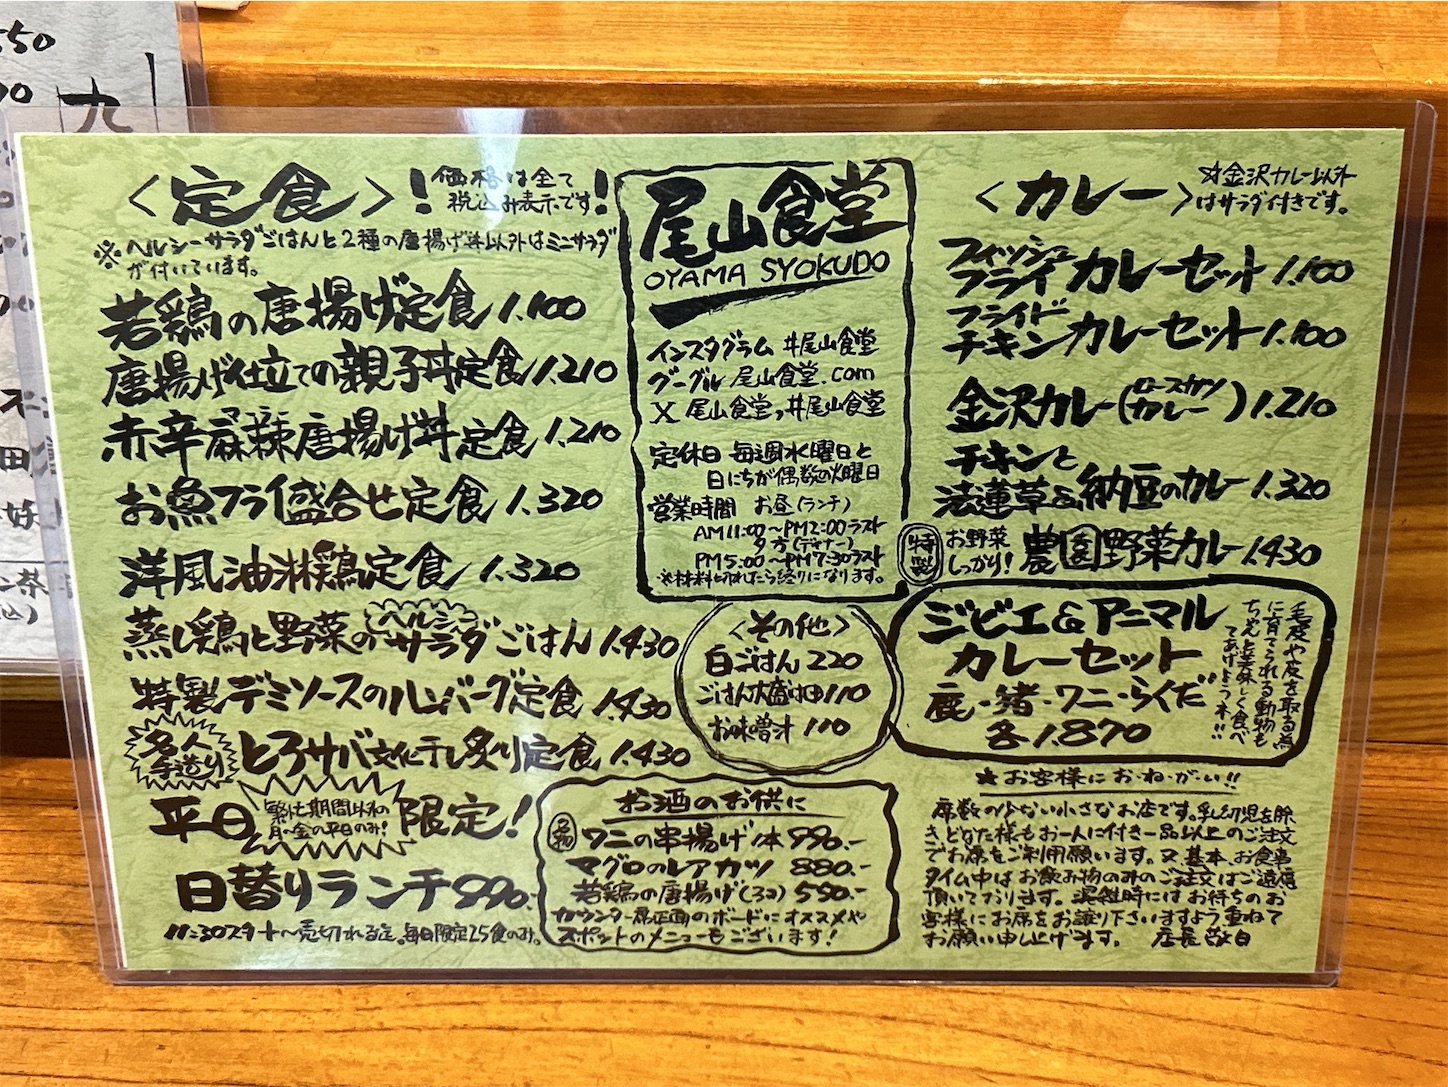 〈定食〉
！価格は全て
税込み表示です！
※ヘルシーサラダごはんと2種の唐揚げ丼以外はミニサラダ
が付いています。
若鶏の唐揚げ定食 1.100
唐揚げ仕立ての親子丼定食 1.210
赤辛麻辣唐揚げ丼定食 1.210
お魚フライ盛合せ定食 1.320
洋風油淋鶏定食 1.320
蒸し鶏と野菜のヘルシーサラダごはん 1.430
特製デミソースのハンバーグ定食 1.430
名人手造り とろサバ文化干し炙り定食 1.430
平日 限定！
繁忙期間以外の
月〜金の平日のみ！
日替りランチ 990.-
11:30スタート〜売切れる迄。毎日限定25食のみ。
尾山食堂
OYAMA SYOKUDO
インスタグラム #尾山食堂
グーグル 尾山食堂.com
X 尾山食堂,#尾山食堂
定休日 毎週水曜日と
日にちが偶数の火曜日
営業時間 お昼(ランチ)
AM11:00〜PM2:00ラスト
夕方(ディナー)
PM5:00〜PM7:30ラスト
※材料切れたら終りになります。
〈その他〉
白ごはん 220
ごはん大盛は⊕110
お味噌汁 110
お酒のお供に
名物 ワニの串揚げ1本 990.-
マグロのレアカツ 880.-
若鶏の唐揚げ(3コ) 550.-
カウンター席正面のボードにオススメや
スポットのメニューもございます！
〈カレー〉
☆金沢カレー以外
はサラダ付きです。
フィッシュフライカレーセット 1.100
フライドチキンカレーセット 1.100
金沢カレー(ロースカツカレー) 1.210
チキンと法蓮草&納豆のカレー 1.320
特製 お野菜しっかり！ 農園野菜カレー 1.430
ジビエ&アニマル
カレーセット
鹿・猪・ワニ・らくだ
各 1.870
毛皮や皮を取る為
に育てられる動物も
ちゃんと美味しく食べ
てあげようネ！！
★お客様にお・ね・が・い！！
席数の少ない小さなお店です。乳幼児を除
きどなた様もお一人に付き一品以上のご注文
でお席をご利用願います。又基本、お食事
タイム中はお飲み物のみのご注文はご遠慮
頂いております。混雑時にはお待ちのお
客様にお席をお譲り下さいますよう重ねて
お願い申し上げます。 店長敬白